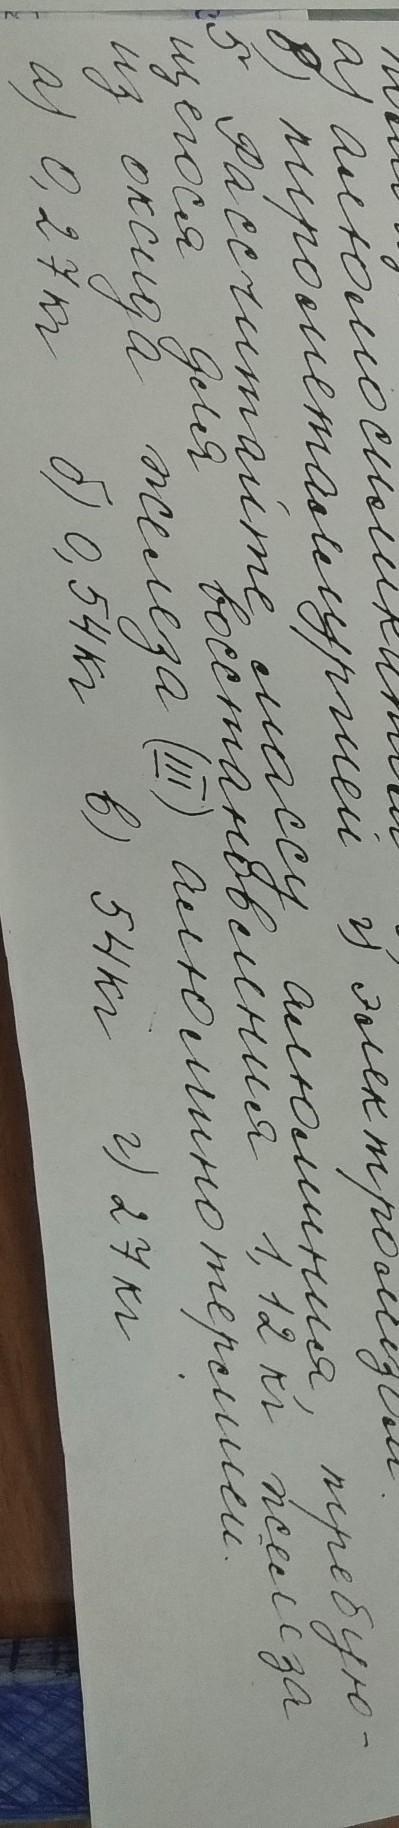 а) алюмосиликатом г) электролизом.
в) пирометаллургией
5 Рассчитайте массу алюминия, требую-
щегося для восстановления 1,12 кг железа
из оксида железа (III) алюминотермией.
а) 0,27кг б) 0,54кг в) 54кг г) 27кг